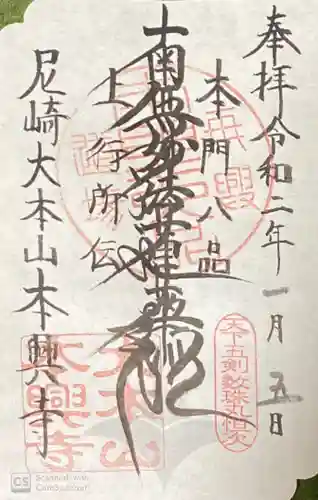 奉拝令和二年一月五日
本門八品
南無妙法蓮華経
上行所伝
尼崎大本山本興寺
天下五剣数珠丸恒次
大本山
本興寺
CS Scanned with CamScanner